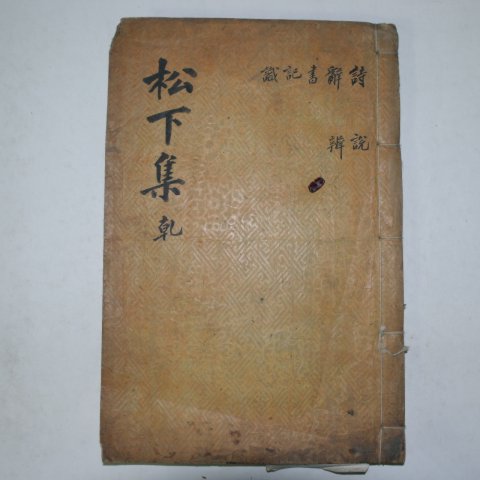 松下集 乾
詩 辭 書 記 識
說 辨